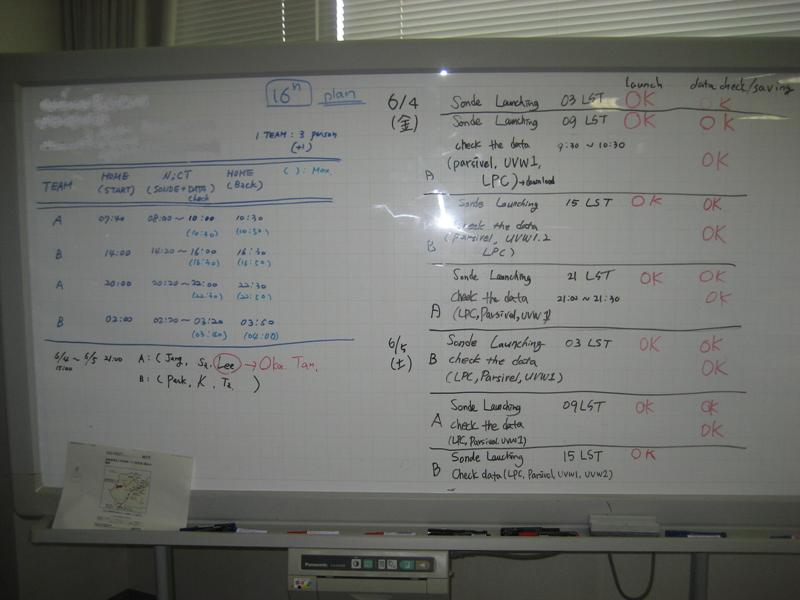 16th plan
1 TEAM : 3 person
(+1)
TEAM HOME (START) N;CT (SONDE+DATA) check HOME (Back) ( ) : Max.
A 07:40 08:00 ~ 10:00 10:30
(10:30) (10:50)
B 14:00 14:20 ~ 16:00 16:30
(16:30) (16:50)
A 20:00 20:20 ~ 22:00 22:30
(22:30) (22:50)
B 02:00 02:20 ~ 03:20 03:50
(04:00)
6/4 ~ 6/5 21:00
15:00
A : ( Jang, Lee → Oka. Tan.
B : ( Park, K, )
launch data check/saving
6/4 Sonde Launching 03 LST OK OK
(金) Sonde Launching 09 LST OK OK
check the data 9:30 ~ 10:30
(parsivel, UVW1, OK
A LPC) → download
Sonde Launching 15 LST OK OK
check the data OK
B (Parsivel, UVW1.2
LPC)
Sonde Launching 21 LST OK OK
check the data 21:00 ~ 21:30 OK
A (LPC, Parsivel, UVW1)
6/5 Sonde Launching 03 LST OK OK
(土) B check the data OK
(LPC, Parsivel, UVW1)
Sonde Launching 09 LST OK OK
A check the data OK
(LPC, Parsivel, UVW1)
Sonde Lauching 15 LST OK
B Check data (LPC, Parsivel, UVW1, UVW2)
Panasonic